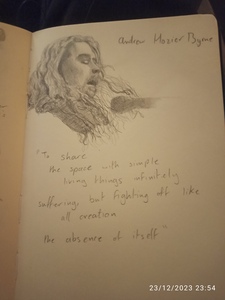 Andrew Hozier Byrne
"To share
the space with simple
living things infinitely
suffering, but fighting off like
all creation
the absence of itself"
23/12/2023 23:54